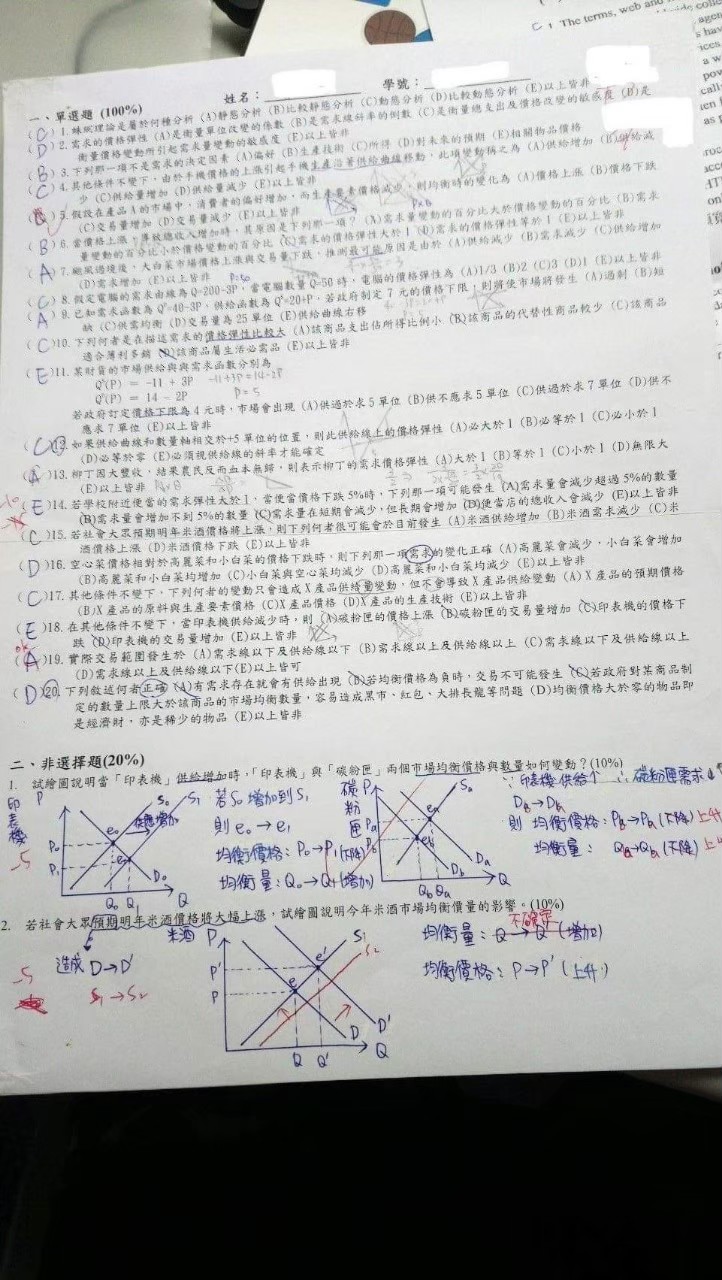 C 1 The terms, web and
姓名： 學號：
一、單選題 (100%)
(C) 1. 蛛網理論是屬於何種分析 (A)靜態分析 (B)比較靜態分析 (C)動態分析 (D)比較動態分析 (E)以上皆非
(D) 2. 需求的價格彈性 (A)是衡量單位改變的係數 (B)是需求線斜率的倒數 (C)是衡量總支出及價格改變的敏感度 (D)是
衡量價格變動所引起需求量變動的敏感度 (E)以上皆非
(B) 3. 下列那一項不是需求的決定因素 (A)偏好 (B)生產技術 (C)所得 (D)對未來的預期 (E)相關物品價格
(C) 4. 其他條件不變下，由於手機價格的上漲引起手機生產沿著供給曲線移動，此項變動稱之為 (A)供給增加 (B)供給減
少 (C)供給量增加 (D)供給量減少 (E)以上皆非
5. 假設在產品A的市場中，消費者的偏好增加，而生產要素價格減少，則均衡時的變化為 (A)價格上漲 (B)價格下跌
(C)交易量增加 (D)交易量減少 (E)以上皆非
(B) 6. 當價格上漲，導致總收入增加時，其原因是下列那一項？ (A)需求量變動的百分比大於價格變動的百分比 (B)需求
量變動的百分比小於價格變動的百分比 (C)需求的價格彈性大於1 (D)需求的價格彈性等於1 (E)以上皆非
(A) 7. 颱風過境後，大白菜市場價格上漲與交易量下跌，推測最可能原因是由於 (A)供給減少 (B)需求減少 (C)供給增加
(D)需求增加 (E)以上皆非 P=50
(C) 8. 假定電腦的需求曲線為 Q=200-3P，當電腦數量 Q=50 時，電腦的價格彈性為 (A)1/3 (B)2 (C)3 (D)1 (E)以上皆非
(A) 9. 已知需求函數為 Q=40-3P，供給函數為 Q=20+P，若政府制定 7 元的價格下限，則將使市場將發生 (A)過剩 (B)短
缺 (C)供需均衡 (D)交易量為 25 單位 (E)供給曲線右移
(C)10. 下列何者是在描述需求的價格彈性比較大 (A)該商品支出佔所得比例小 (B)該商品的代替性商品較少 (C)該商品
適合薄利多銷 (D)該商品屬生活必需品 (E)以上皆非
(E)11. 某財貨的市場供給與需求函數分別為
Q(P) = -11 + 3P -11+3P=14-2P
Q(P) = 14 - 2P P=5
若政府訂定價格下限為 4 元時，市場會出現 (A)供過於求 5 單位 (B)供不應求 5 單位 (C)供過於求 7 單位 (D)供不
應求 7 單位 (E)以上皆非
(C)12. 如果供給曲線和數量軸相交於+5 單位的位置，則此供給線上的價格彈性 (A)必大於 1 (B)必等於 1 (C)必小於 1
(D)必等於零 (E)必須視供給線的斜率才能確定
(A)13. 柳丁因大豐收，結果農民反而血本無歸，則表示柳丁的需求價格彈性 (A)大於 1 (B)等於 1 (C)小於 1 (D)無限大
(E)以上皆非
(E)14. 若學校附近便當的需求彈性大於 1，當便當價格下跌 5%時，下列那一項可能發生 (A)需求量會減少超過 5%的數量
(B)需求量會增加不到 5%的數量 (C)需求量在短期會減少，但長期會增加 (D)便當店的總收入會減少 (E)以上皆非
(C)15. 若社會大眾預期明年米酒價格將上漲，則下列何者很可能會於目前發生 (A)米酒供給增加 (B)米酒需求減少 (C)米
酒價格上漲 (D)米酒價格下跌 (E)以上皆非
(D)16. 空心菜價格相對於高麗菜和小白菜的價格下跌時，則下列那一項需求的變化正確 (A)高麗菜會減少，小白菜會增加
(B)高麗菜和小白菜均增加 (C)小白菜與空心菜均減少 (D)高麗菜和小白菜均減少 (E)以上皆非
(C)17. 其他條件不變下，下列何者的變動只會造成X產品供給量變動，但不會導致X產品供給變動 (A)X產品的預期價格
(B)X產品的原料與生產要素價格 (C)X產品價格 (D)X產品的生產技術 (E)以上皆非
(E)18. 在其他條件不變下，當印表機供給減少時，則 (A)碳粉匣的價格上漲 (B)碳粉匣的交易量增加 (C)印表機的價格下
跌 (D)印表機的交易量增加 (E)以上皆非
(A)19. 實際交易範圍發生於 (A)需求線以下及供給線以下 (B)需求線以上及供給線以上 (C)需求線以下及供給線以上
(D)需求線以上及供給線以下(E)以上皆可
(D)20. 下列敘述何者正確 (A)有需求存在就會有供給出現 (B)若均衡價格為負時，交易不可能發生 (C)若政府對某商品制
定的數量上限大於該商品的市場均衡數量，容易造成黑市、紅包、大排長龍等問題 (D)均衡價格大於零的物品即
是經濟財，亦是稀少的物品 (E)以上皆非
二、非選擇題(20%)
1. 試繪圖說明當「印表機」供給增加時，「印表機」與「碳粉匣」兩個市場均衡價格與數量如何變動？(10%)
印表機 P S₀ S₁ 供給增加 e₀ e₁ P₀ P₁ D₀ Q₀ Q₁ Q
-5
若S₀增加到S₁
則 e₀→e₁
均衡價格：P₀→P₁(下降)
均衡量：Q₀→Q₁(增加)
碳粉匣 P S₀ Pa Pb ea eb Db Da Qb Qa Q
∵印表機供給↑ ∴碳粉匣需求↓
Da→Db
則 均衡價格：Pa→Pb(下降) 上升
均衡量：Qa→Qb(下降)
2. 若社會大眾預期明年米酒價格將大幅上漲，試繪圖說明今年米酒市場均衡價量的影響。(10%)
造成 D→D'
S₁→S₂
-5
米酒 P S₁ S₂ P' P e' e D D' Q Q' Q
不確定
均衡量：Q→Q'(增加)
均衡價格：P→P'(上升)